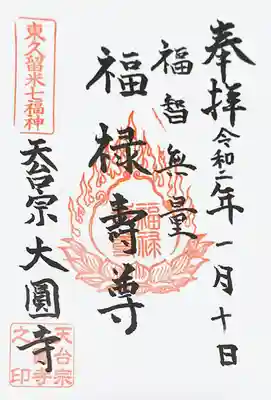 奉拝
令和二年一月十日
福智無量
福禄壽尊
東久留米七福神
天台宗 大圓寺
福禄
天台宗
寺
之印